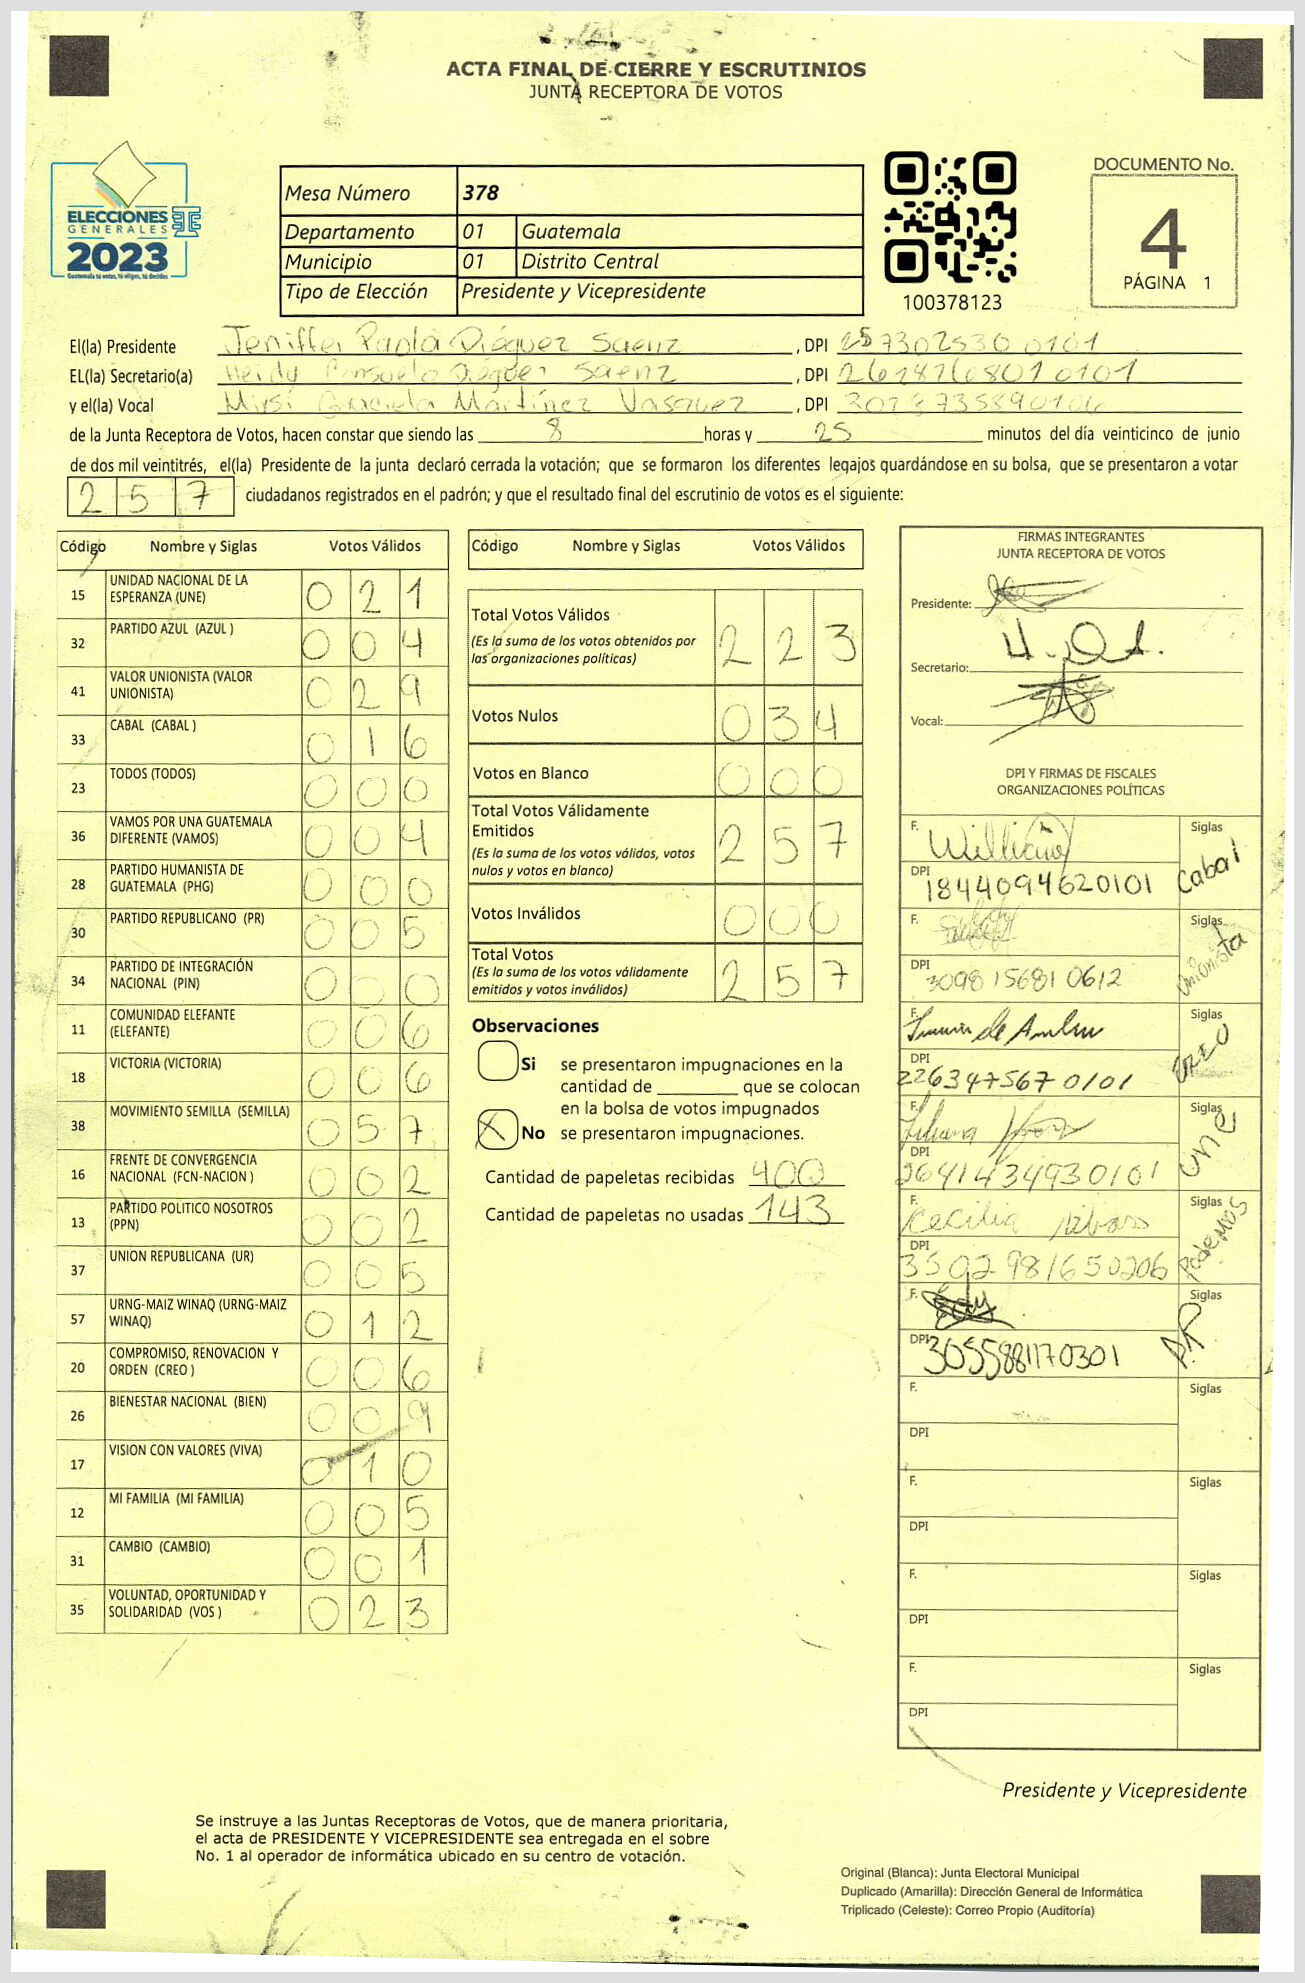 ACTA FINAL DE CIERRE Y ESCRUTINIOS
JUNTA RECEPTORA DE VOTOS
ELECCIONES
GENERALES
2023
Guatemala tú votas, tú eliges, tú decides
Mesa Número 378
Departamento 01 Guatemala
Municipio 01 Distrito Central
Tipo de Elección Presidente y Vicepresidente
100378123
DOCUMENTO No.
4
PÁGINA 1
El(la) Presidente Jeniffer Paola Diéguez Saenz, DPI 2573025300101
EL(la) Secretario(a) Heidy Consuelo Diéguez Saenz, DPI 2618768010101
y el(la) Vocal Mirsi Graciela Martínez Vasquez, DPI
de la Junta Receptora de Votos, hacen constar que siendo las 8 horas y 25 minutos del día veinticinco de junio
de dos mil veintitrés, el(la) Presidente de la junta declaró cerrada la votación; que se formaron los diferentes legajos guardándose en su bolsa, que se presentaron a votar
257 ciudadanos registrados en el padrón; y que el resultado final del escrutinio de votos es el siguiente:
Código Nombre y Siglas Votos Válidos
15 UNIDAD NACIONAL DE LA ESPERANZA (UNE) 021
32 PARTIDO AZUL (AZUL ) 004
41 VALOR UNIONISTA (VALOR UNIONISTA) 029
33 CABAL (CABAL ) 016
23 TODOS (TODOS) 000
36 VAMOS POR UNA GUATEMALA DIFERENTE (VAMOS) 004
28 PARTIDO HUMANISTA DE GUATEMALA (PHG) 000
30 PARTIDO REPUBLICANO (PR) 005
34 PARTIDO DE INTEGRACIÓN NACIONAL (PIN) 000
11 COMUNIDAD ELEFANTE (ELEFANTE) 006
18 VICTORIA (VICTORIA) 006
38 MOVIMIENTO SEMILLA (SEMILLA) 057
16 FRENTE DE CONVERGENCIA NACIONAL (FCN-NACION ) 002
13 PARTIDO POLITICO NOSOTROS (PPN) 002
37 UNION REPUBLICANA (UR) 005
57 URNG-MAIZ WINAQ (URNG-MAIZ WINAQ) 012
20 COMPROMISO, RENOVACION Y ORDEN (CREO ) 006
26 BIENESTAR NACIONAL (BIEN) 009
17 VISION CON VALORES (VIVA) 010
12 MI FAMILIA (MI FAMILIA) 005
31 CAMBIO (CAMBIO) 001
35 VOLUNTAD, OPORTUNIDAD Y SOLIDARIDAD (VOS ) 023
Código Nombre y Siglas Votos Válidos
Total Votos Válidos 223
(Es la suma de los votos obtenidos por
las organizaciones políticas)
Votos Nulos 034
Votos en Blanco 000
Total Votos Válidamente
Emitidos 257
(Es la suma de los votos válidos, votos
nulos y votos en blanco)
Votos Inválidos 000
Total Votos 257
(Es la suma de los votos válidamente
emitidos y votos inválidos)
Observaciones
Si se presentaron impugnaciones en la
cantidad de ________ que se colocan
en la bolsa de votos impugnados
X No se presentaron impugnaciones.
Cantidad de papeletas recibidas 400
Cantidad de papeletas no usadas 143
FIRMAS INTEGRANTES
JUNTA RECEPTORA DE VOTOS
Presidente:
Secretario:
Vocal:
DPI Y FIRMAS DE FISCALES
ORGANIZACIONES POLÍTICAS
F. Siglas Cabal
DPI 1844094620101
F. Siglas Unionista
DPI 3098156810612
F. Siglas CREO
DPI 2263475670101
F. Siglas une
DPI 2641434930101
F. Cecilia Siglas Podemos
DPI 3502981650206
F. Siglas P.R
DPI 3055881170301
F. Siglas
DPI
F. Siglas
DPI
F. Siglas
DPI
F. Siglas
DPI
Presidente y Vicepresidente
Se instruye a las Juntas Receptoras de Votos, que de manera prioritaria,
el acta de PRESIDENTE Y VICEPRESIDENTE sea entregada en el sobre
No. 1 al operador de informática ubicado en su centro de votación.
Original (Blanca): Junta Electoral Municipal
Duplicado (Amarilla): Dirección General de Informática
Triplicado (Celeste): Correo Propio (Auditoría)